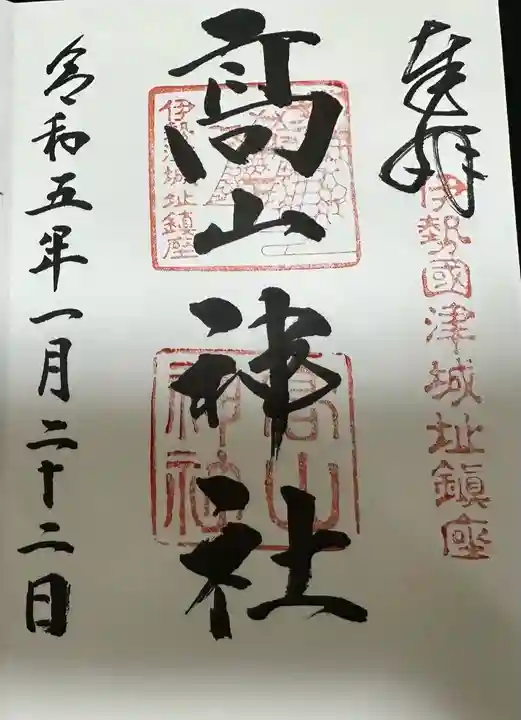 奉拝
伊勢國津城址鎮座
高山神社
伊勢津城址鎮座
高山神社
令和五年一月二十二日